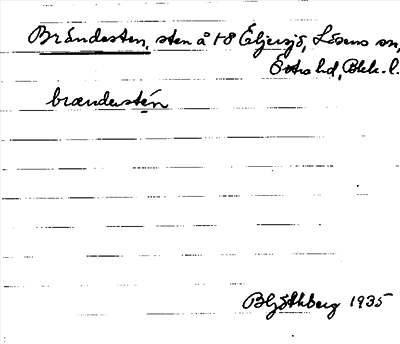 Brändesten, sten å 1-8 Eljersjö, Lösens sn,
Östra hd, Blek. l.
brændestén
B Hjöthberg 1935